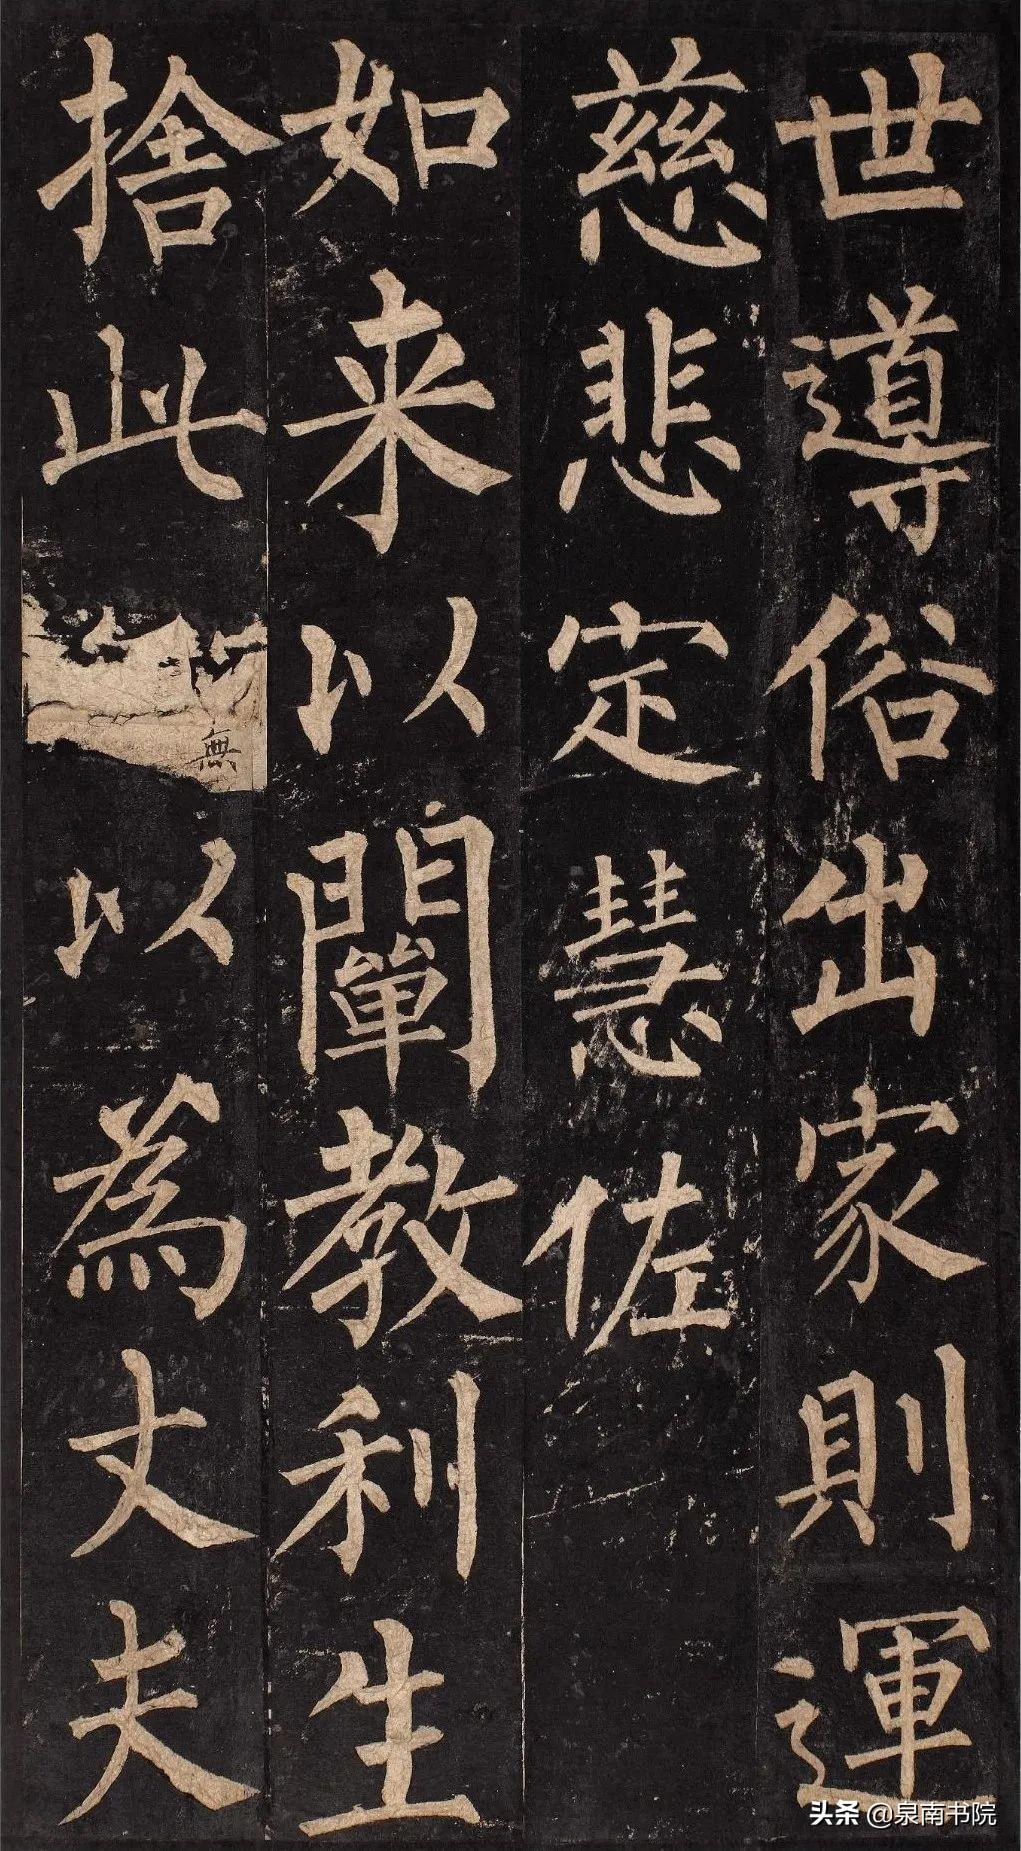 世導俗出家則運
慈悲定慧佐
如来以闡教利生
捨此無以為丈夫
头条 @泉南书院